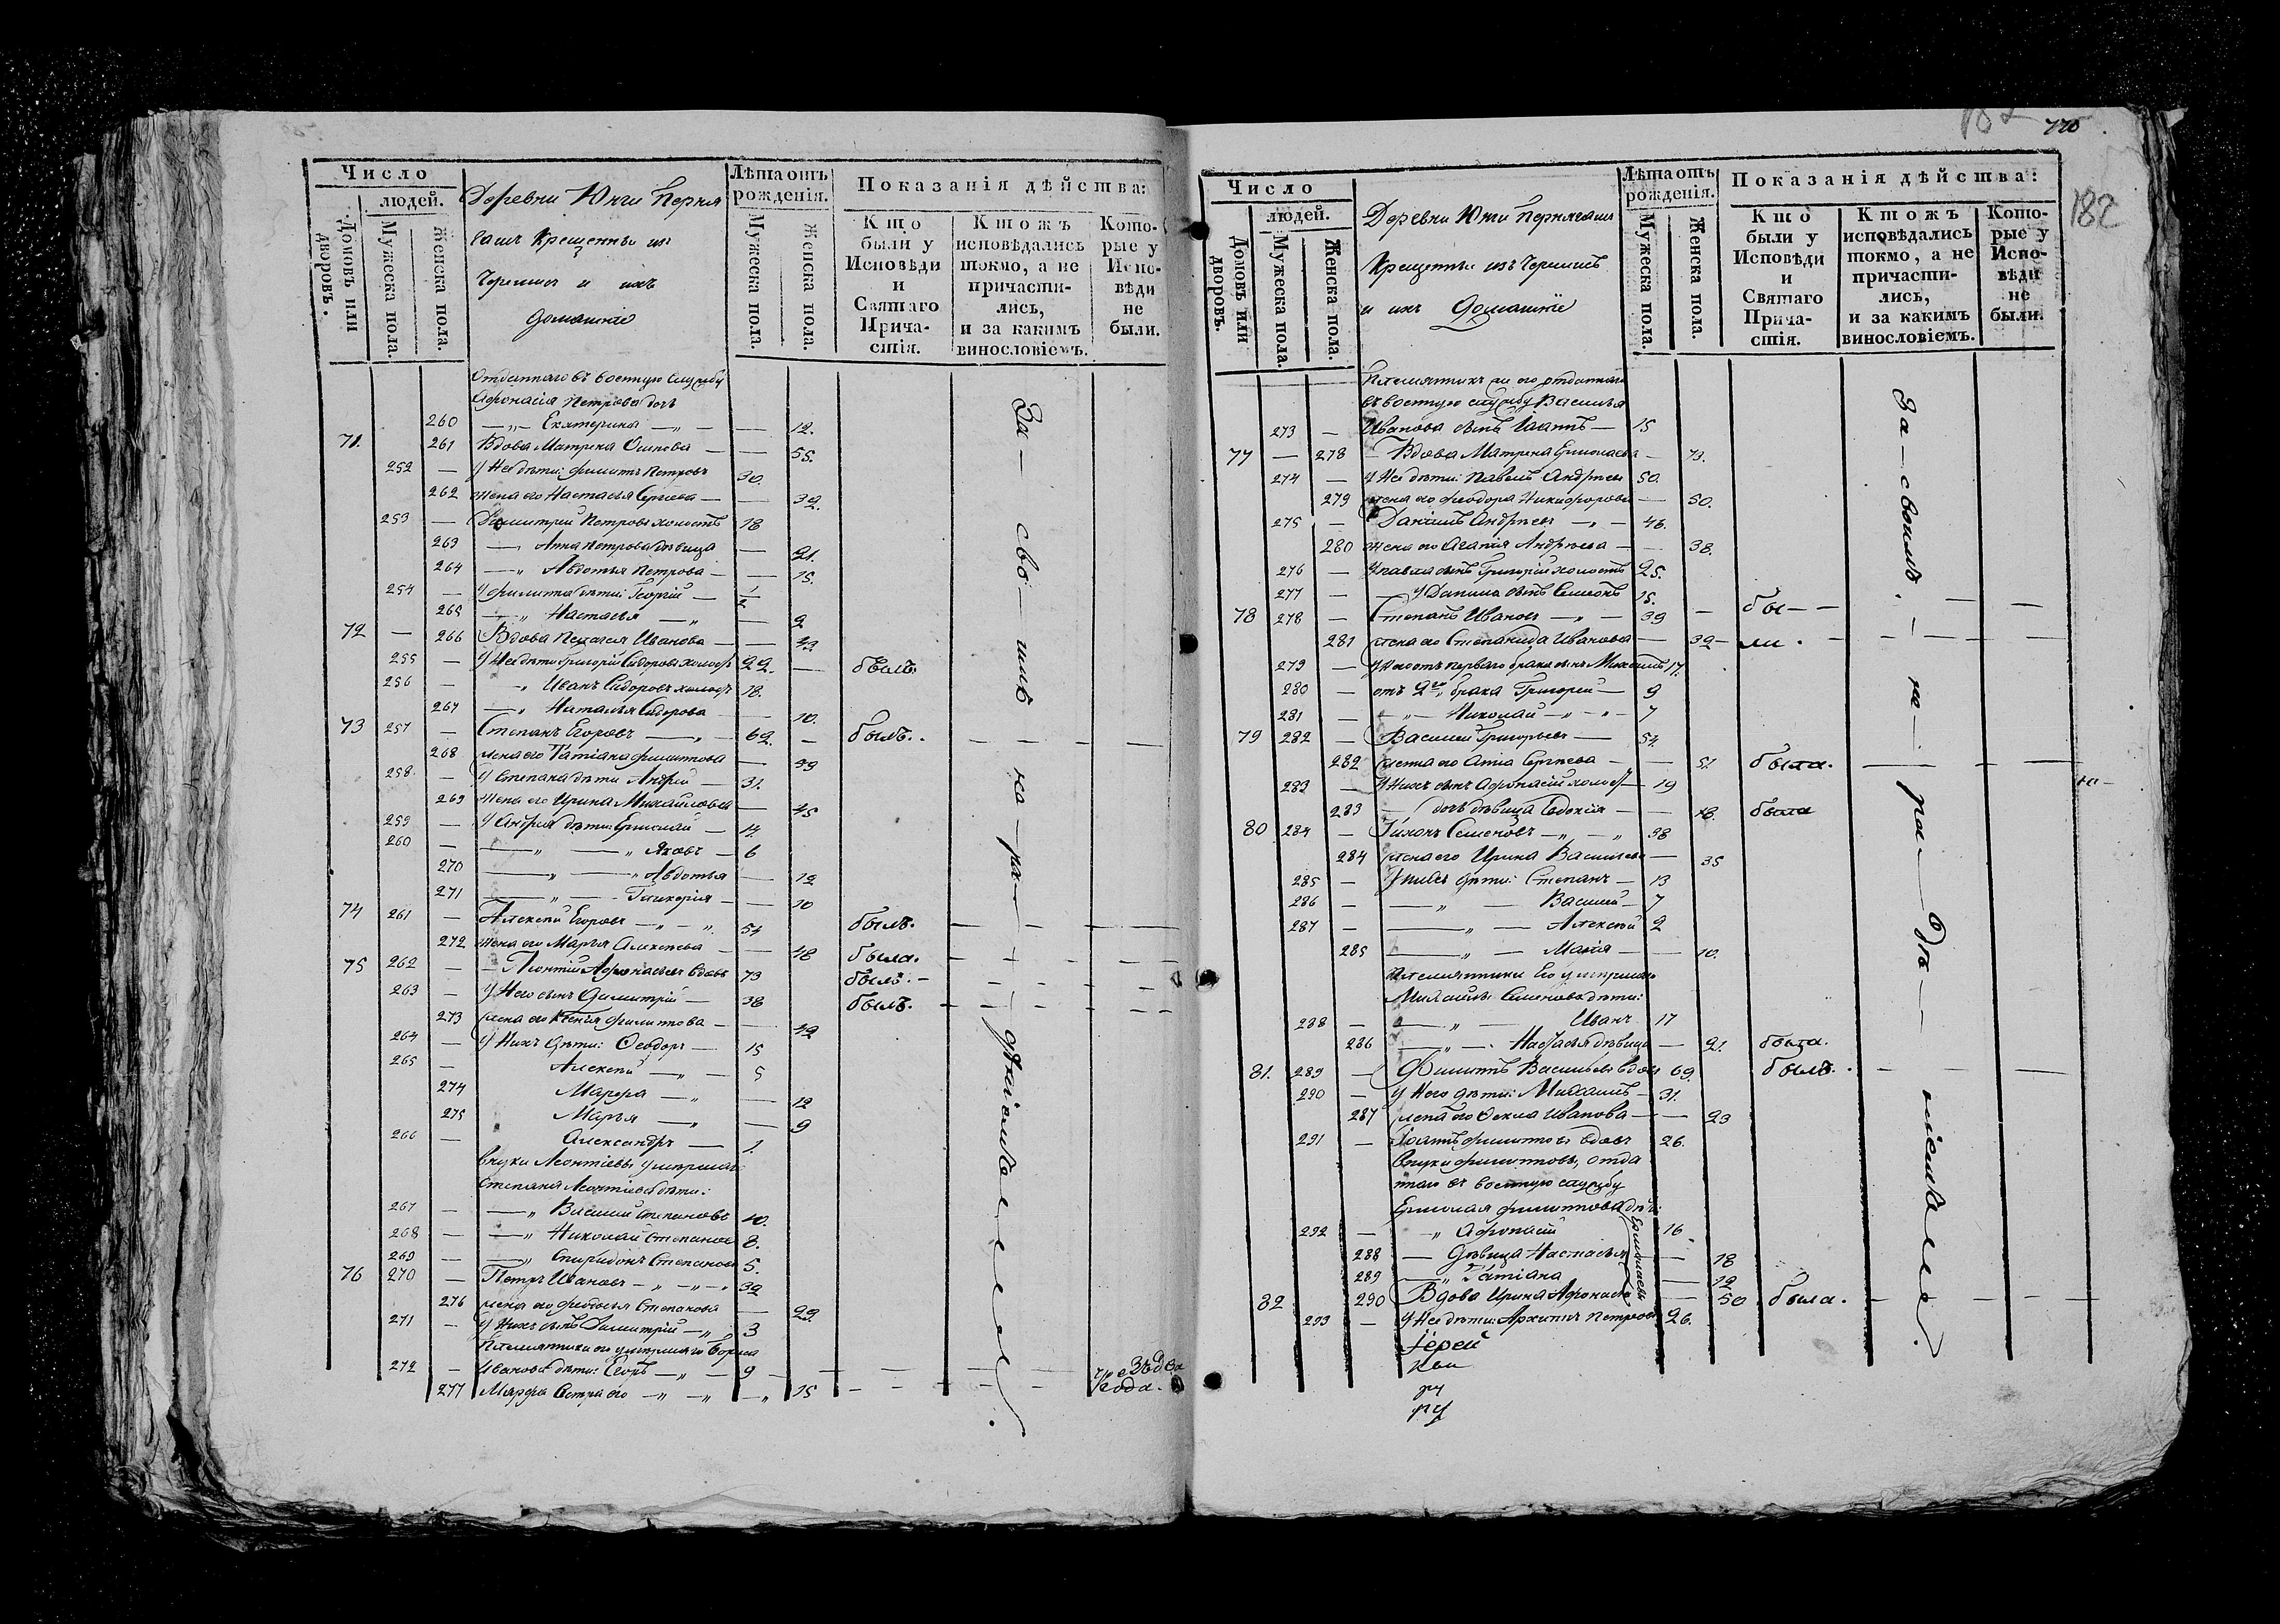 Число
людей.
Домовъ или дворовъ.
Мужеска пола.
Женска пола.
Деревни Юнги Перня
гашъ Крещенныи изъ
Черемисъ и ихъ
домашніе
Лѣта отъ рожденія.
Мужеска пола.
Женска пола.
Показанія дѣйства:
Кто были у Исповѣди и Святаго Причастія.
Ктожъ исповѣдались токмо, а не причастились, и за какимъ винословіемъ.
Которые у Исповѣди не были.
Отданнаго въ военную службу
Афонасія Петрова дочь
260 —„— Екатерина —„— — 12.
71. 261 Вдова Матрена Осипова — — 55.
252 — У Нея дѣти: Филиппъ Петровъ 30.
262 жена его Настасья Сергѣева — — 32.
253 — Димитрей Петровъ холостъ 18
263 —„ Анна Петрова дѣвица — 21.
264 —„ Авдотья Петрова — — 15.
254 — У Филиппа дѣти: Георгій — 1/2
265 —„ Настасья —„ — 2
72 — 266 Вдова Пелагея Иванова — — 49
255 — У Нея дѣти Григорій Сидоровъ холостъ 22. — былъ.
256 — —„ Иванъ Сидоровъ холостъ 18.
267 —„ Наталья Сидорова — 10.
73 257 — Степанъ Егоровъ —„— 62. — былъ. — — — —
268 жена его Татіана Филиппова — 39
258. — У Степана дѣти Андрей — 31.
269 жена его Ирина Михайлова — 45
259 — У Андрея дѣти: Ермолай — 14.
260 — —„ —„ Яковъ — 6
270 —„ —„ Авдотья — 12
271 —„— Гликерія — — 10
74 261 — Алексей Егоровъ —„—„ 54 былъ. — — — —
272 жена его Марья Алексѣева — — 48 была. — — — —
75 262 — Леонтій Афонасьевъ вдовъ 73 былъ. — — — —
263 — У Него сынъ Димитрій — 38 былъ. — — — —
273 жена его Ксенія Филиппова — — 42
264 — У Нихъ дѣти: Ѳеодоръ — 15
265 — Алексей —„— 5
274 Марфа —„ — 12
275 Марья —„ — 9
266 — Александръ — 1.
Внуки Леонтіевы умершаго
Степана Леонтіева дѣти:
267 — —„ Василий Степановъ 10.
268 — —„ Николай Степановъ 8.
269 — —„ Спиридонъ Степановъ 5.
76 270 — Петръ Ивановъ —„—„— 32
276 жена его Федосья Степанова — 29.
271 — У Нихъ сынъ Димитрій —„ 3
Племянники его умершаго Бориса
272 — Иванова дѣти: Егоръ —„— 9 — — — —
277 Марфа Сестра его —„ —„ —„ 15 — — — —
За — сво — имъ — на — ра —
770
182
Число
людей.
Домовъ или дворовъ.
Мужеска пола.
Женска пола.
Деревни Юнги Пернягашъ
Крещенныи изъ Черемисъ
и ихъ домашніе
Лѣта отъ рожденія.
Мужеска пола.
Женска пола.
Показанія дѣйства:
Кто были у Исповѣди и Святаго Причастія.
Ктожъ исповѣдались токмо, а не причастились, и за какимъ винословіемъ.
Которые у Исповѣди не были.
Племянникъ его отданнаго
въ военную службу Василья
273 — Иванова сынъ Іоаннъ — 15
77 — 278 — Вдова Матрена Ермолаева — 73.
274 — У Нея дѣти: Павелъ Андрѣевъ 50.
279 жена его Феодора Никифорова — 50.
275 — Даніилъ Андрѣевъ —„— 46.
280 жена его Агапія Андрѣева — — 38.
276 — У Павла сынъ Григорій холостъ 25.
277 — — У Данила сынъ Семенъ 15.
78 278 — Степанъ Ивановъ —„— 39 — бы — —
281 жена его Степанида Иванова — 39 — ли. — — — —
279 — У Него отъ перваго брака сынъ Михаилъ 17.
280 — отъ 2го брака Григорей — 9
281 — —„— Николай —„—„— 7
79 282 — Василей Григорьевъ — 54.
282 жена его Анна Сергѣева — — 51 была. — — —
283 — У Нихъ сынъ Афонасій холостъ — 19
283 — дочь дѣвица Евдокія — — 18. была
80 284 — Тихонъ Семеновъ —„—„ 38
284 жена его Ирина Васильева — 35
285 — У нихъ дѣти: Степанъ — 13
286 — —„— Василий — 7
287 — —„— Алексей 2
285 —„— Марія — — 10.
Племянники Его умершаго
Михаила Семенова дѣти:
288 — —„— Иванъ 17
286 —„— Настасья дѣвица — 21. была.
81. 289 — Филиппъ Васильевъ вдовъ 69. былъ. — — —
290 — У Него дѣти: Михаилъ — 31.
287 жена его Фекла Иванова — — 23
291 — Іоаннъ Филипповъ вдовъ 26.
Внуки Филипповы, отда
ннаго въ военную службу
Ермолая Филиппова дѣти:
292 — —„ Афонасій 16
288 — Дѣвица Настасья — 18
289 —„ Татіана — 12
82 290 Вдова Ирина Афонасьева — 50 была. — — — —
293 — У Нея дѣти: Архиппъ Петровъ 26.
За — своимъ. — на — ра —
Іерей